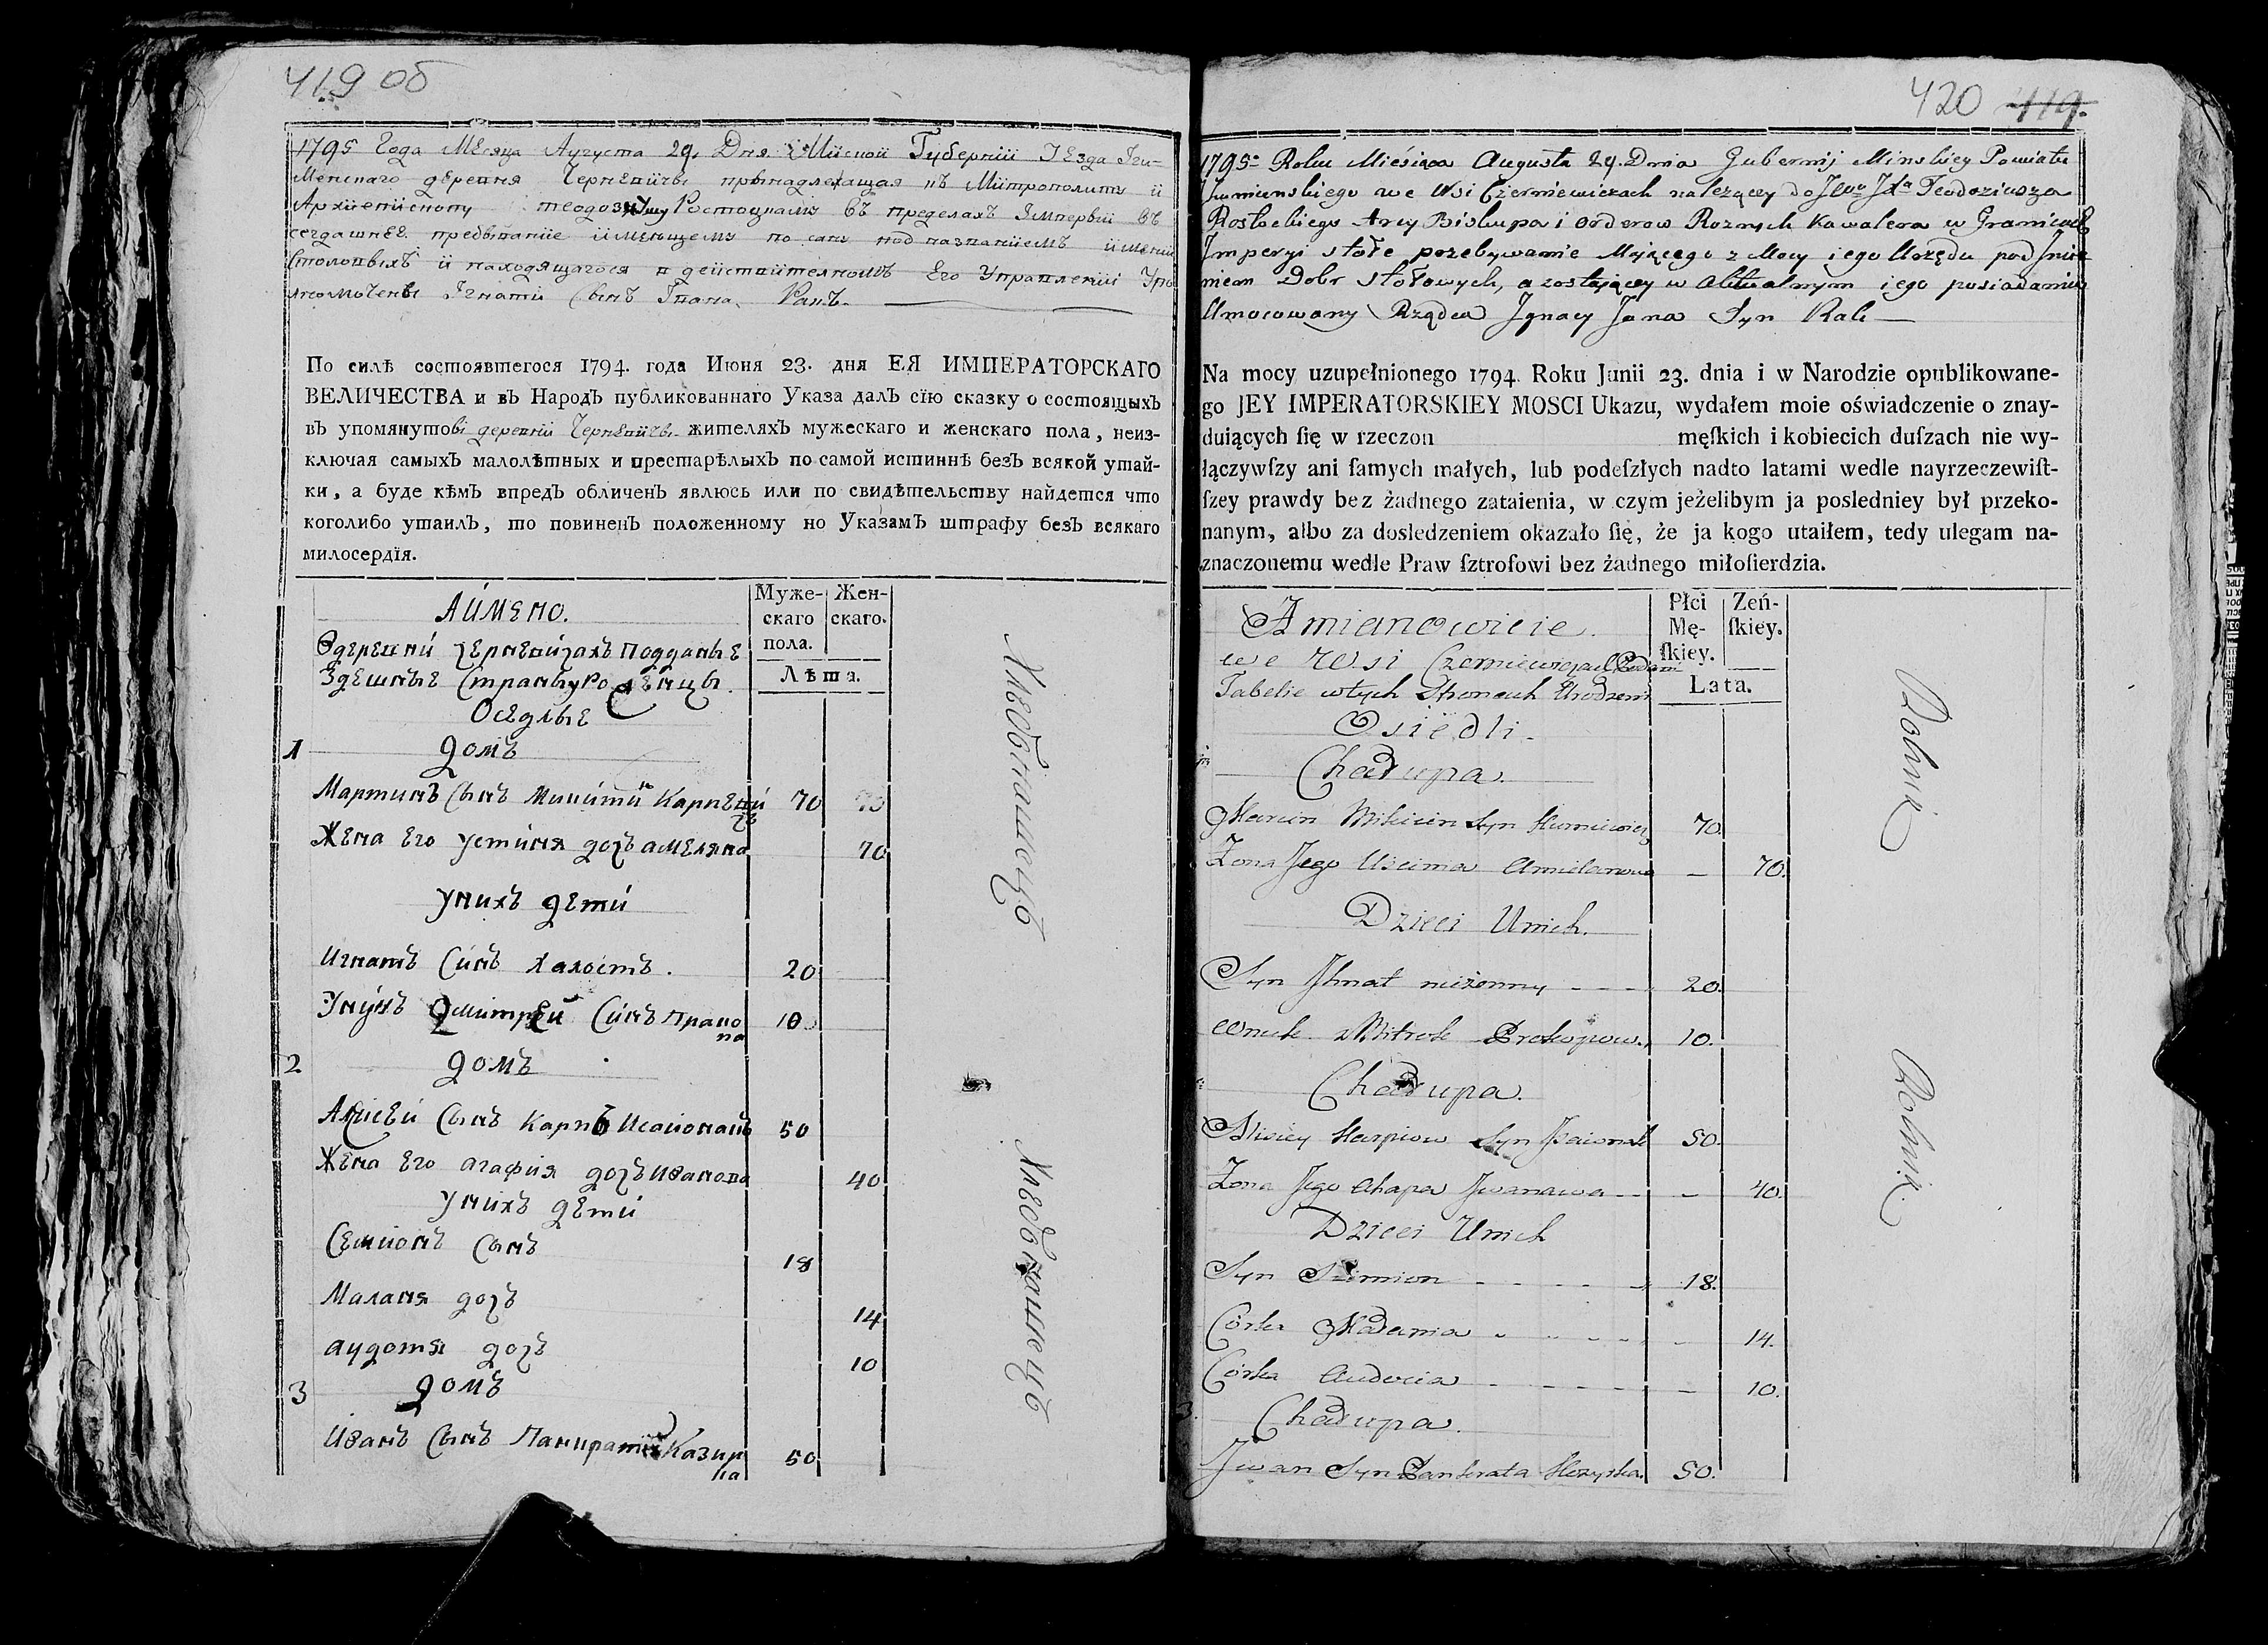 419 об
1795 Года Месяца Аугуста 29. Дня Минской Губернии Уезда Игу-
Менскаго деревня Черневичи принадлежащая къ Митрополиту и
Архиепископу Теодозиушу Ростоцкаму въ пределахъ Империи въ
сегдашнее пребытание имеющему по сану под названиемъ имений
Столовыхъ и находящагося в действителномъ Его Управлении Упо
лномоченъ Игнати Сынъ Ивана
По силѣ состоявшегося 1794. года Июня 23. дня ЕЯ ИМПЕРАТОРСКАГО
ВЕЛИЧЕСТВА и въ Народъ публикованнаго Указа далъ сїю сказку о состоящыхъ
въ упомянутові деревні Черневичи жителяхъ мужескаго и женскаго пола, неиз-
ключая самыхъ малолѣтныхъ и престарѣлыхъ по самой истиннѣ безъ всякой утай-
ки, а буде кѣмъ впредъ обличенъ явлюсь или по свидѣтельству найдется что
коголибо утаилъ, то повиненъ положенному по Указамъ штрафу безъ всякаго
милосердїя.
Аймено.
Муже-скаго пола.
Жен-скаго.
Лѣта.
Вдеревни Черневичахъ Подданые
Здешные Страны уроженцы
Оседлые
1 Домъ
Мартинъ Сынъ Микити Карневичъ 70
Жена Его Устиня дочъ амеляна 70
Унихъ дети
Игнатъ Синъ Халостъ. 20
Унукъ Дмитрей Синъ Пракопа 10
2 Домъ
Алисей Сынъ Карпъ Исайонакъ 50
Жена Его агафия дочъ Иванова 40
Унихъ дети
Семионъ Сынъ 18
Маланя дочъ 14
аудотя дочъ 10
3 Домъ
Иванъ Сынъ Панкрата Казырка 50
Хлебопашецъ
Хлебопашецъ
420 419.
1795º Roku Miesiąca Augusta 29. Dnia Gubernij Minskiey Powiatu
Ihumienskiego we Wsi Czerniewiczach należącey do Teodoziusza
Rostockiego Arcy Biskupa i Orderow Roznych Kawalera w Granicach
Imperyi stołe przebywanie Mającego z Mocy iego Urzędu pod Imie
niem Dobr stołowych, a zostającey w Aktualnym iego posiadaniu
Umocowany Rządca Jgnacy Jana Syn
Na mocy uzupełnionego 1794. Roku Junii 23. dnia i w Narodzie opublikowane-
go JEY IMPERATORSKIEY MOSCI Ukazu, wydałem moie oświadczenie o znay-
duiących ſię w rzeczon męſkich i kobiecich duſzach nie wy-
łączywſzy ani ſamych małych, lub podeſzłych nadto latami wedle nayrzeczewiſt-
ſzey prawdy bez żadnego zataienia, w czym jeżelibym ja posledniey był przeko-
nanym, albo za dosledzeniem okazało ſię, że ja kogo utaiłem, tedy ulegam na-
znaczonemu wedle Praw ſztrofowi bez żadnego miłoſierdzia.
Zmianowicie.
Płci Mę-ſkiey.
Zeń-ſkiey.
Lata.
we Wsi Czerniewiczach Podani
Tabelie wtych Stronach Urodzeni
Osiedli.
Chałupa.
Marcin Mikicin Syn Kurniewicz 70.
Żona Jego Uscinia Amielanowa – 70.
Dzieci Unich.
Syn Jhnat nieżenny - - - 20.
Wnuk Mitrok Prokopow. 10.
Chałupa.
Alisiey Karpiow Syn Jsaionak 50.
Żona Jego Ahapa Jwanawa - - – 40.
Dzieci Unich
Syn Simion - - - - - 18.
Corka Małania - - - - - – 14.
Corka Audocia - - - - - – 10.
3. Chałupa.
Jwan Syn Pankrata Kozyrka. 50.
Rolnik
Rolnik